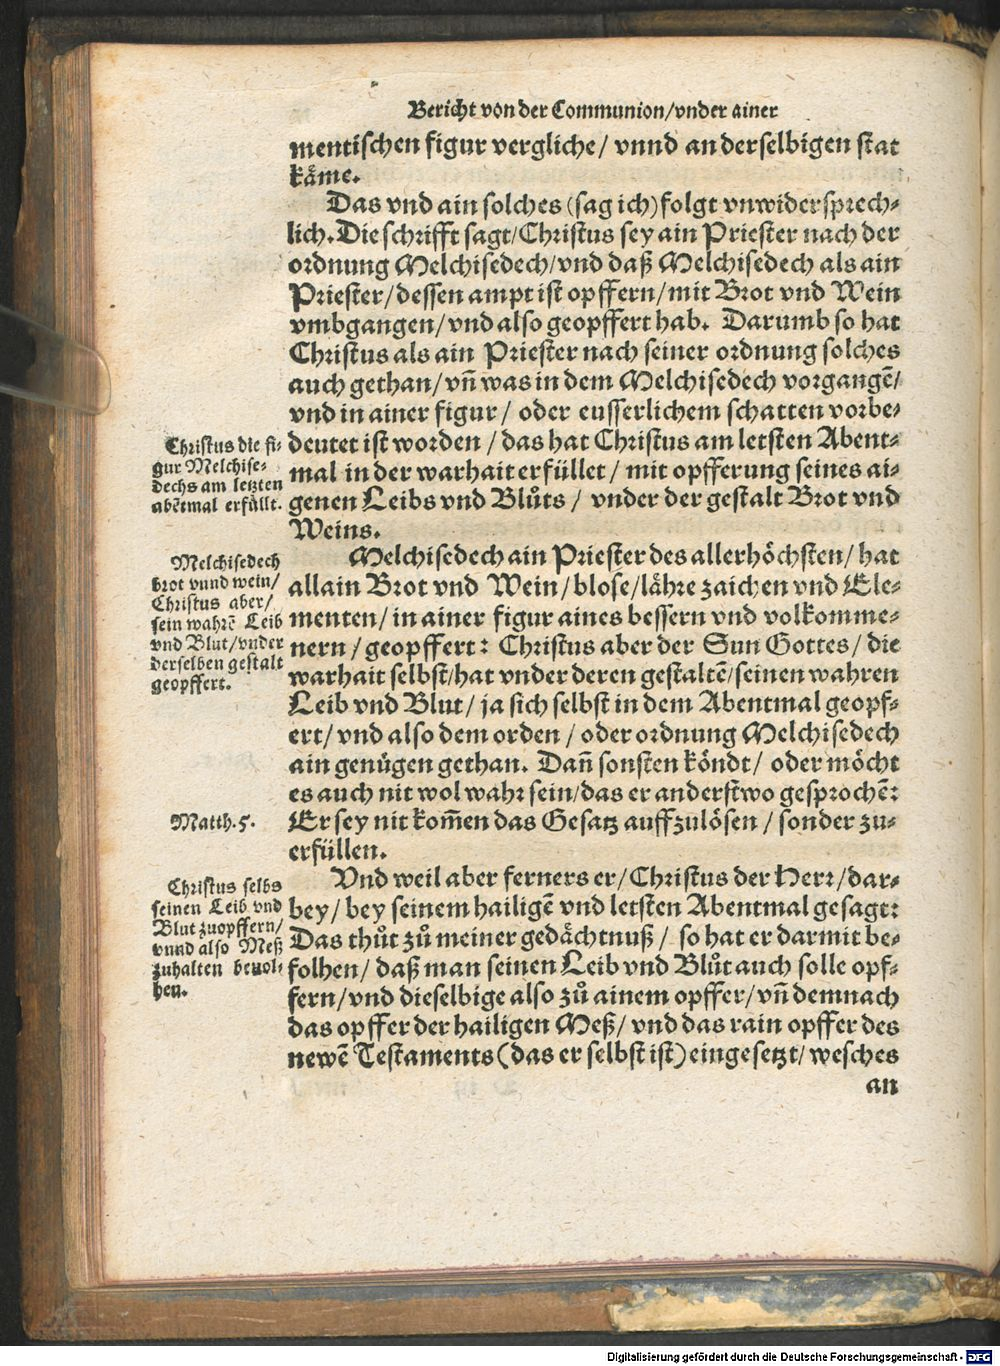 Bericht von der Communion/vnder ainer
mentischen figur vergliche/ vnnd an derselbigen stat
käme.
Das vnd ain solches (sag ich) folgt vnwidersprech-
lich. Die schrifft sagt/Christus sey ain Priester nach der
ordnung Melchisedech/vnd daß Melchisedech als ain
Priester/dessen ampt ist opffern/mit Brot vnd Wein
vmbgangen/vnd also geopffert hab. Darumb so hat
Christus als ain Priester nach seiner ordnung solches
auch gethan/vñ was in dem Melchisedech vorgangē/
vnd in ainer figur/ oder eusserlichem schatten vorbe-
deutet ist worden/das hat Christus am letsten Abent-
mal in der warhait erfüllet/ mit opfferung seines ai-
genen Leibs vnd Blůts/ vnder der gestalt Brot vnd
Weins.
Christus die fi-
gur Melchise-
dechs am letzten
abētmal erfüllt.
Melchisedech ain Priester des allerhöchsten/ hat
allain Brot vnd Wein/blose/lähre zaichen vnd Ele-
menten/in ainer figur aines bessern vnd volkomme-
nern/geopffert: Christus aber der Sun Gottes/ die
warhait selbst/hat vnder deren gestaltē/seinen wahren
Leib vnd Blut/ ja sich selbst in dem Abentmal geopf-
ert/ vnd also dem orden/ oder ordnung Melchisedech
ain genügen gethan. Dañ sonsten köndt/ oder möcht
es auch nit wol wahr sein/das er anderstwo gesprochē:
Er sey nit kom̄en das Gesatz auffzulösen/ sonder zu-
erfüllen.
Melchisedech
brot vnnd wein/
Christus aber/
sein wahrē Leib
vnd Blut/vnder
derselben gestalt
geopffert.
Matth.5.
Vnd weil aber ferners er/Christus der Herr/dar-
bey/ bey seinem hailigē vnd letsten Abentmal gesagt:
Das thůt zů meiner gedächtnuß/ so hat er darmit be-
folhen/ daß man seinen Leib vnd Blůt auch solle opf-
fern/vnd dieselbige also zů ainem opffer/vñ demnach
das opffer der hailigen Meß/ vnd das rain opffer des
newē Testaments (das er selbst ist) eingesetzt/ wesches
an
Christus selbs
seinen Leib vnd
Blut zuopffern/
vnnd also Meß
zuhalten beuol-
hen.
Digitalisierung gefördert durch die Deutsche Forschungsgemeinschaft - DFG